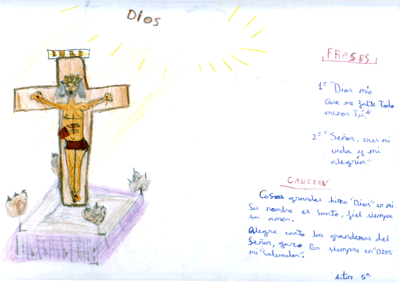 Dios
FRASES
1º "Dios mío
que me falte todo
menos Tú"
2º "Señor, eres mi
vida y mi
alegría"
CANCION
Cosas grandes hizo "Dios" en mi.
Su nombre es santo, fiel siempre
su amor.
Alegre canto las grandezas del
Señor, gozo por siempre en "Dios
mi "Salvador".
5º